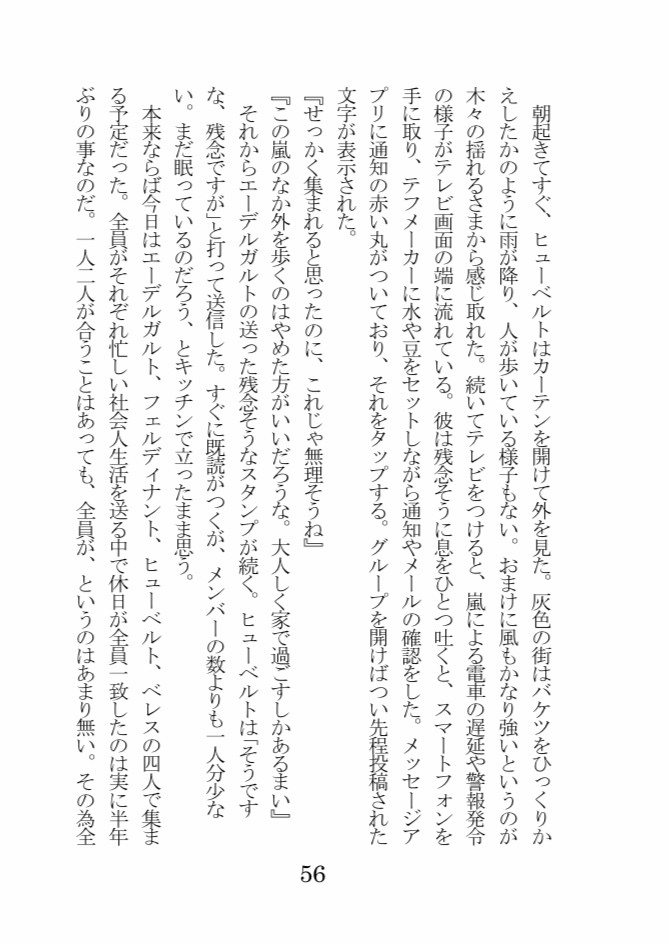 朝起きてすぐ、ヒューベルトはカーテンを開けて外を見た。灰色の街はバケツをひっくりか
えしたかのように雨が降り、人が歩いている様子もない。おまけに風もかなり強いというのが
木々の揺れるさまから感じ取れた。続いてテレビをつけると、嵐による電車の遅延や警報発令
の様子がテレビ画面の端に流れている。彼は残念そうに息をひとつ吐くと、スマートフォンを
手に取り、テフメーカーに水や豆をセットしながら通知やメールの確認をした。メッセージア
プリに通知の赤い丸がついており、それをタップする。グループを開けばつい先程投稿された
文字が表示された。
『せっかく集まれると思ったのに、これじゃ無理そうね』
『この嵐のなか外を歩くのはやめた方がいいだろうな。大人しく家で過ごすしかあるまい』
それからエーデルガルトの送った残念そうなスタンプが続く。ヒューベルトは「そうです
な、残念ですが」と打って送信した。すぐに既読がつくが、メンバーの数よりも一人分少な
い。まだ眠っているのだろう、とキッチンで立ったまま思う。
本来ならば今日はエーデルガルト、フェルディナント、ヒューベルト、ベレスの四人で集ま
る予定だった。全員がそれぞれ忙しい社会人生活を送る中で休日が全員一致したのは実に半年
ぶりの事なのだ。一人二人が合うことはあっても、全員が、というのはあまり無い。その為全
56